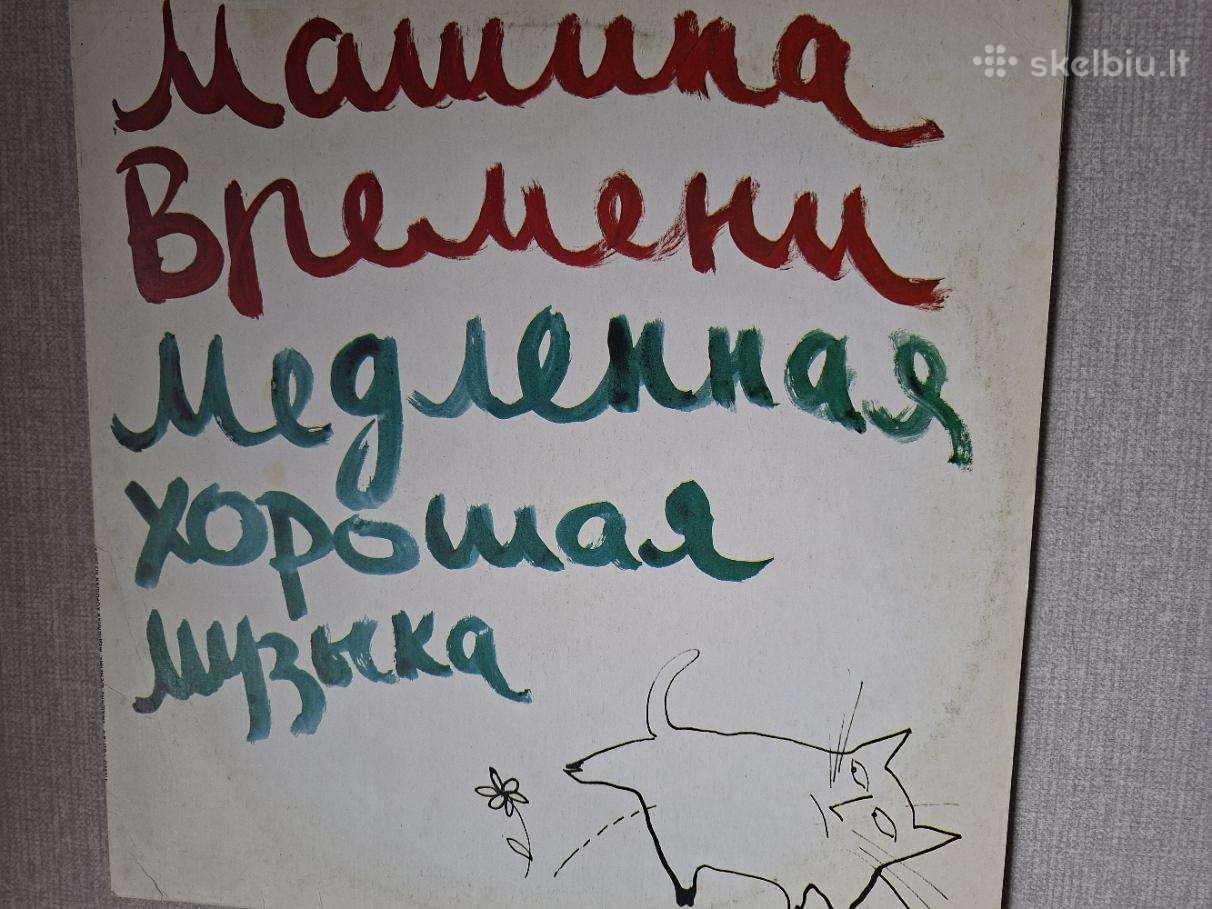 skelbiu.lt
Машина
Времени
медленная
хорошая
музыка